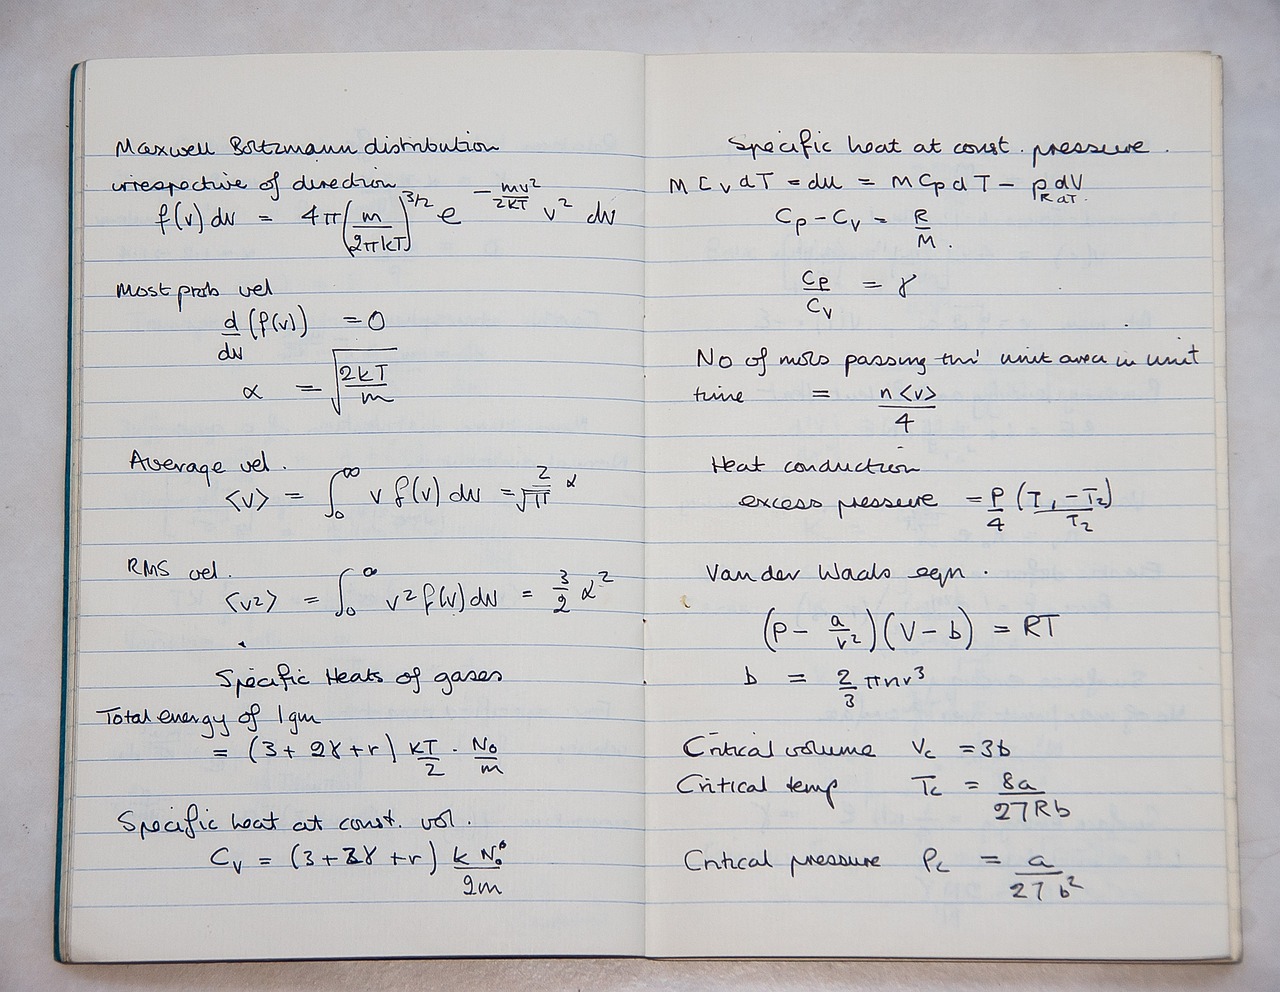 Maxwell Boltzmann distribution
irrespective of direction
f(v) dv = 4π(m/2πkT)^3/2 e^-mv²/2kT v² dv
Most prob vel
d/dv (f(v)) = 0
α = √(2kT/m)
Average vel.
<v> = ∫₀^∞ v f(v) dv = 2/√π α
RMS vel.
<v²> = ∫₀^∞ v² f(v) dv = 3/2 α²
Specific Heats of gases
Total energy of 1gm
= (3 + 2γ + r) kT/2 · N₀/m
Specific heat at const. vol.
Cv = (3 + 2γ + r) k N₀/2m
Specific heat at const. pressure.
M Cv dT = du = M Cp dT - p dV
R dT.
Cp - Cv = R/M.
Cp/Cv = γ
No of mols passing thro' unit area in unit
time = n <v>/4
Heat conduction
excess pressure = P/4 (T₁ - T₂)/T₂
Van der Waals eqn.
(P - a/v²)(V - b) = RT
b = 2/3 πnr³
Critical volume Vc = 3b
Critical temp Tc = 8a/27Rb
Critical pressure Pc = a/27b²